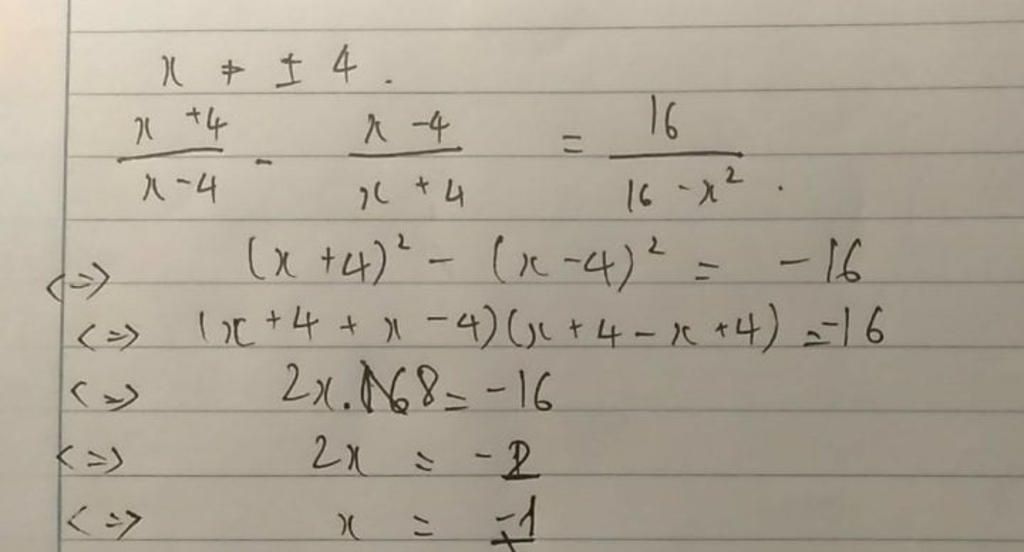 x ≠ ± 4 .
(x + 4)/(x - 4) - (x - 4)/(x + 4) = 16/(16 - x²) .
<=> (x + 4)² - (x - 4)² = - 16
<=> (x + 4 + x - 4)(x + 4 - x + 4) = -16
<=> 2x . 8 = - 16
<=> 2x = - 2
<=> x = -1